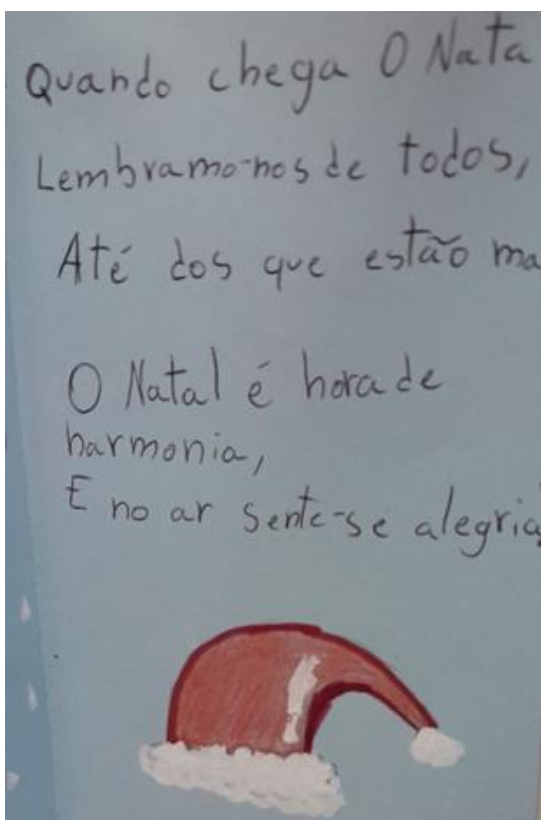 Quando chega O Nata
Lembramo-nos de todos,
Até dos que estão ma
O Natal é hora de
harmonia,
E no ar sente-se alegria